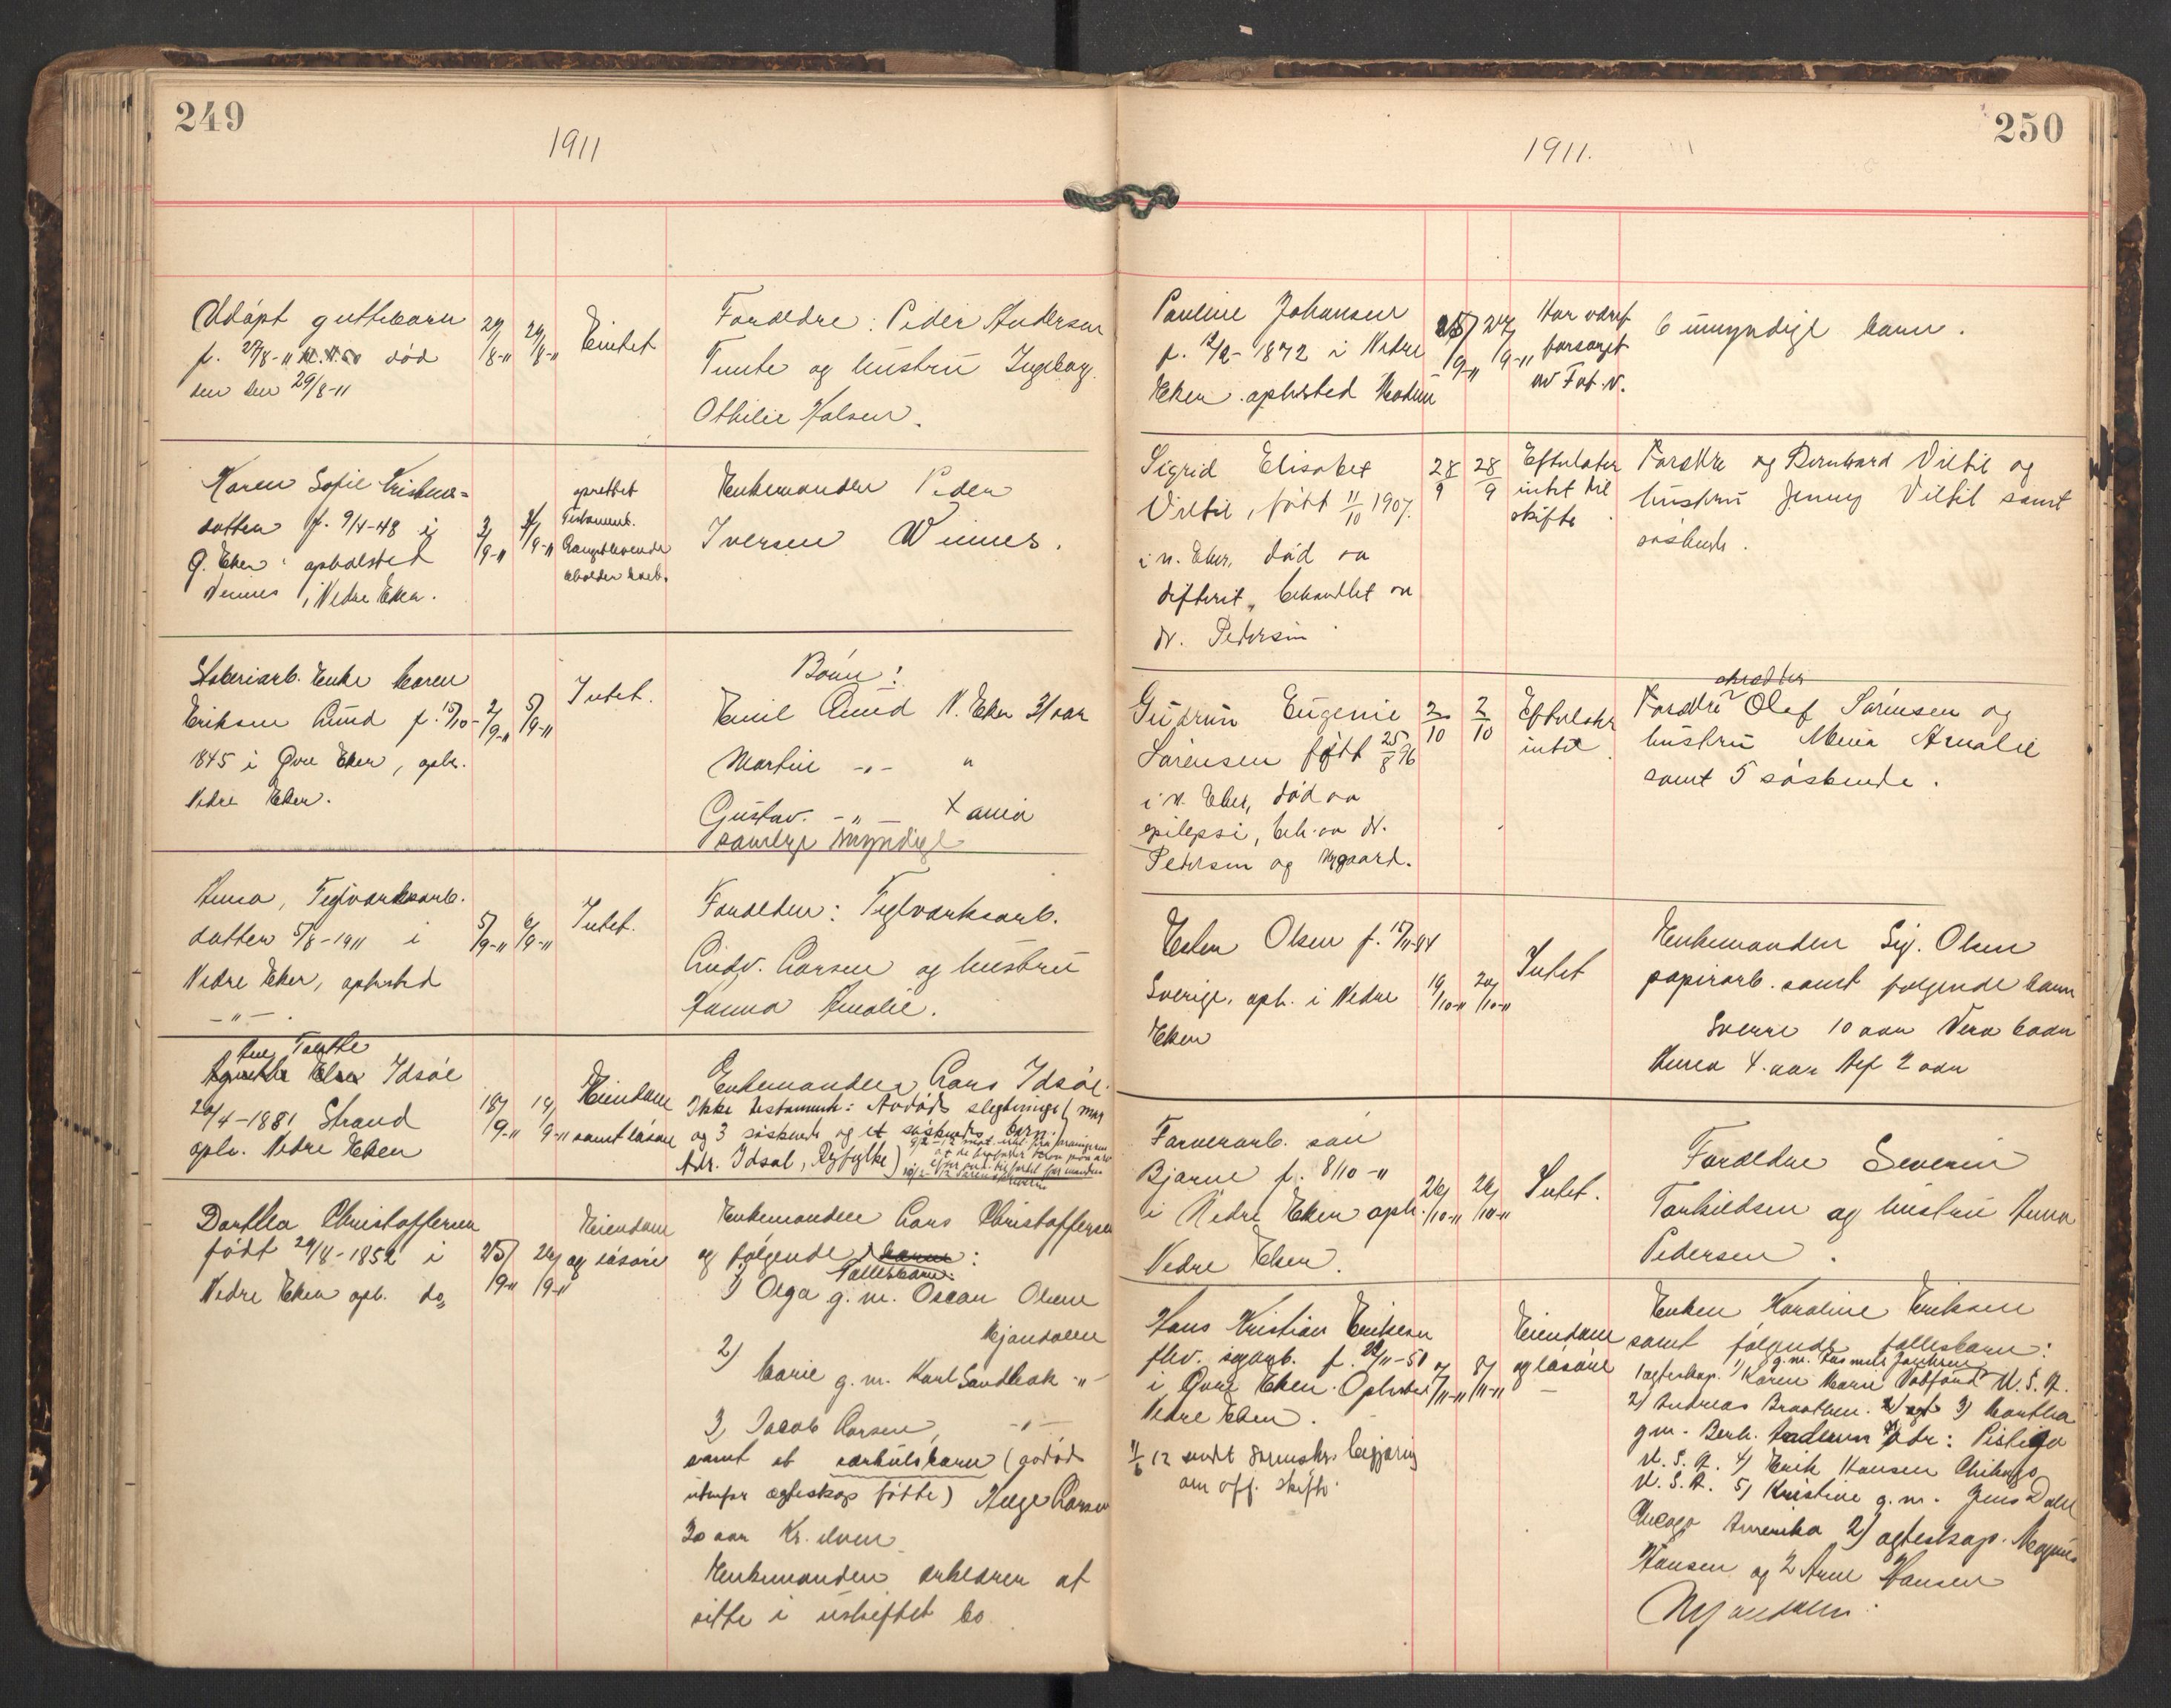 249
1911
Udøpt guttebarn
f. 27/8-11 død
den 29/8-11
29/8-11
29/8-11
Eintet
Forældre: Peder Andersen
Tumte og hustru Ingeborg
Othilie Halsen.
Karen Sofie Kristens=
datter f. 9/4-48 i
Ø. Eker opholdsted
Vinnes i Nedre Eker.
2/9-11
3/9-11
oprettet
Testament.
Længstlevende
beholder boet.
Enkemanden Peder
Iversen Winnes.
Sloberiarb. Enke Maren
Eriksen Lund f. 15/10-
1845 i Øvre Eker, oph.
Nedre Eker.
2/9-11
5/9-11
Intet.
Børn:
Emil Lund N. Eker 31 aar
Martin -"- "
Gustav. -"- X ania
samtlige myndige
Anna, Teglværksarb.
datter 5/8-1911 i
Nedre Eker, ophsted
-"-.
5/9-11
6/9-11
Intet.
Forældre: Teglværksarb.
Ludv. Larsen og hustru
Hanna Amalie.
Idsøe
20/4-1881 Strand
oph. Nedre Eker
18/9-11
19/9-11
Eiendom
samt løsøre
Enkemanden Lars Idsøe.
Ikke testament: Avdøds slegtninge (mor
og 3 søskende og et søskendes barn.
Adr. Idsal, Ryfylke)
Dorthea Christoffersen
født 29/8-1852 i
Nedre Eker oph. do
25/9-11
26/9-11
Eiendom
og løsøre
Enkemanden Lars Christoffersen
og følgende børn:
Fællesbarn:
1) Olga g.m. Oscar Olsen
Mjøndalen
2) Marie g.m. Karl Sandbak -"-
3) Jacob Larsen, -"-
samt et særkulsbarn (avdøds
utenfor ægteskap fødte) Helge Larsen
30 aar Kr. elven
Enkemanden erklærer at
sitte i uskiftet bo.
250
1911.
Pauline Johansen
f. 12/2-1872 i Nedre
Eker. ophsted Modum
25/9-11
27/9-11
Har været
forsørget
av Fat.v.
6 umyndige barn.
Sigrid Elisabet
Viltil, født 11/10 1907.
i n. Eker, død av
difterit, behandlet av
dr. Pedersen
28/9
28/9
Efterlater
intet til
skifte.
Forældre og Bernhard Viltil og
hustru Jenny Viltil samt
søskende.
Gudrun Eugenie
Sørensen født 25/8 96
i n. Eker, død av
epilepsi, beh. av dr.
Pedersen og Nygaard.
2/10
2/10
Efterlater
intet
skrædder
Forældre Olof Sørensen og
hustru Mina Amalie
samt 5 søskende.
Ester Olsen f. 15/11-84
Sverige, oph. i Nedre
Eker
19/10-11
20/10-11
Intet
Enkemanden Sig. Olsen
papirarb. samt følgende barn
Sverre 10 aar Vera 6 aar
Anna 4. aar Alf 2 aar
Farverarb. søn
Bjarne f. 8/10-11
i Nedre Eker oph.
Nedre Eker.
26/10-11
26/10-11
Intet.
Forældre Severin
Torkildsen og hustru Anna
Pedersen.
Hans Kristian Eriksen
fhv. sagarb. f. 22/11-50
i Øvre Eker. Ophsted
Nedre Eker.
11/6 12 sendt Sorenskr. begjæring
om off. skifte.
7/11-11
8/11-11
Eiendom
og løsøre
Enken Karoline Eriksen
samt følgende fællesbarn:
1 ægteskap. 1) Karen Marie U.S.A.
2) Andreas Braathen. 3) Martha
g.m. Berh. Andersen Adr: Pistigo
U.S.A. 4) Erik Hansen Chikago
U.S.A. 5) Kristine g.m. Jens Dahl
Chicago Amerika 2) ægteskap. Magnus
Hansen og 2 Arne Hansen
Mjøndalen.